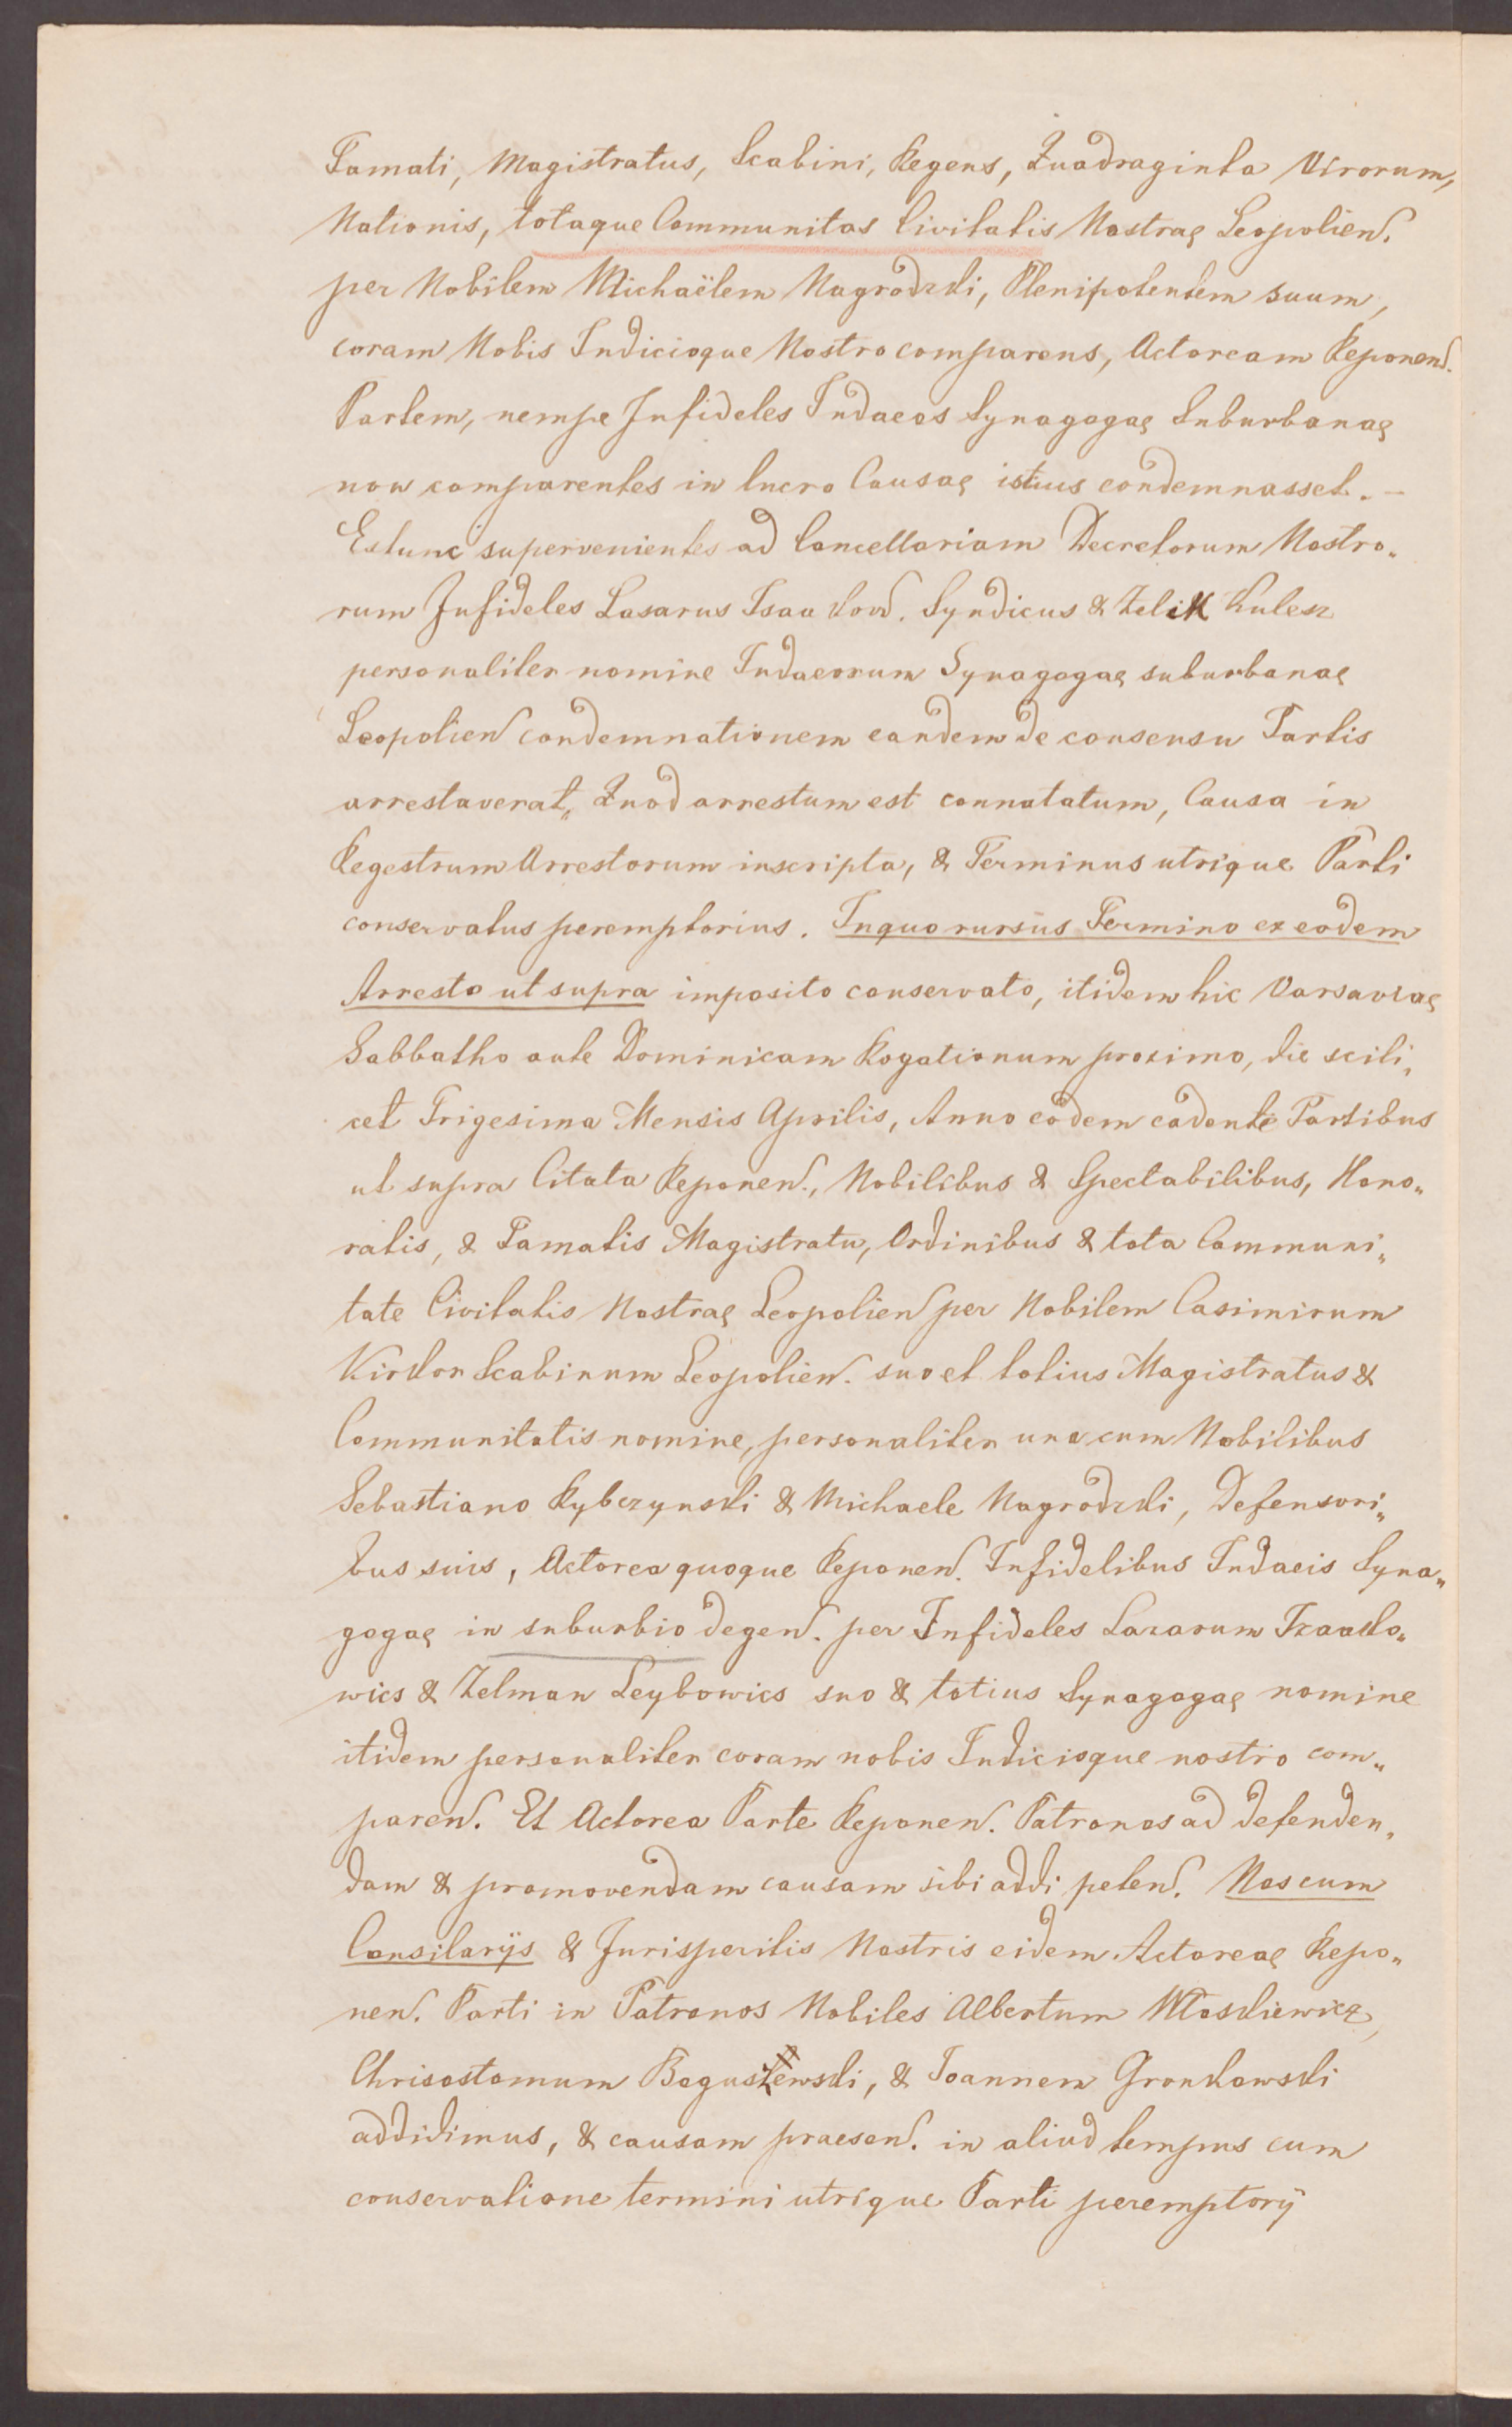 Famati, Magistratus, Scabini, Regens, Quadraginta Virorum,
Nationis, totaque Communitas Civitatis Nostrae Leopolien.
per Nobilem Michaëlem Nagrodzki, Plenipotentem suum,
coram Nobis Judicioque Nostro comparens, Actoream Reponend.
Partem, nempe Infideles Judaeos Synagogae Suburbanae
non comparentes in lucro Causae istius condemnasset. —
Extunc supervenientes ad Cancellariam Decretorum Nostro„
rum Infideles Lasarus Isaakow. Syndicus & Zelik Kulesz
personaliter nomine Judaeorum Synagogae suburbanae
Leopolien condemnationem eandem de consensu Partis
arrestaverat, Quod arrestum est connotatum, Causa in
Regestrum Arrestorum inscripta, & Terminus utrique Parti
conservatus peremptorius. In quo rursus Termino ex eodem
Arresto ut supra imposito conservato, itidem hic Varsaviae
Sabbatho ante Dominicam Rogationum proximo, die scili„
cet Trigesima Mensis Aprilis, Anno eodem cadente Partibus
ut supra Citata Reponen., Nobilibus & Spectabilibus, Hono„
ratis, & Famatis Magistratu, Ordinibus & tota Communi„
tate Civitatis Nostrae Leopolien per Nobilem Casimirum
Kirkor Scabinum Leopolien. suo et totius Magistratus &
Communitatis nomine, personaliter una cum Nobilibus
Sebastiano Rybczynski & Michaele Nagrodzki, Defensori„
bus suis, Actorea quoque Reponen. Infidelibus Judaeis Syna„
gogae in suburbio degen. per Infideles Lazarum Izaako„
wics & Zelman Leybowics suo & totius Synagogae nomine
itidem personaliter coram nobis Judicioque nostro com„
paren. Et Actorea Parte Reponen. Patronos ad defenden„
dam & promovendam causam sibi addi peten. Nos cum
Consilarijs & Jurisperitis Nostris eidem Actoreae Repo„
nen. Parti in Patronos Nobiles Albertum Włoskiewicz,
Chrisostomum Boguszewski, & Joannem Gronkowski
addidimus, & causam praesen. in aliud tempus cum
conservatione termini utrique Parti peremptorij